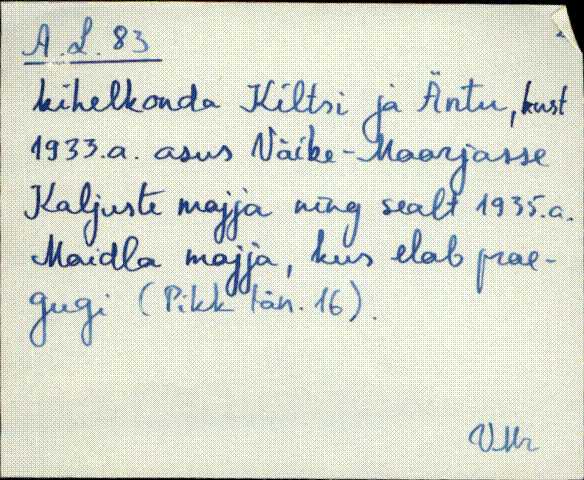 A.L. 83
kihelkonda Kiltsi ja Äntu, kust
1933.a. asus Väike-Maarjasse
Kaljuste majja ning sealt 1935.a.
Maidla majja, kus elab prae-
gugi (Pikk tän. 16).